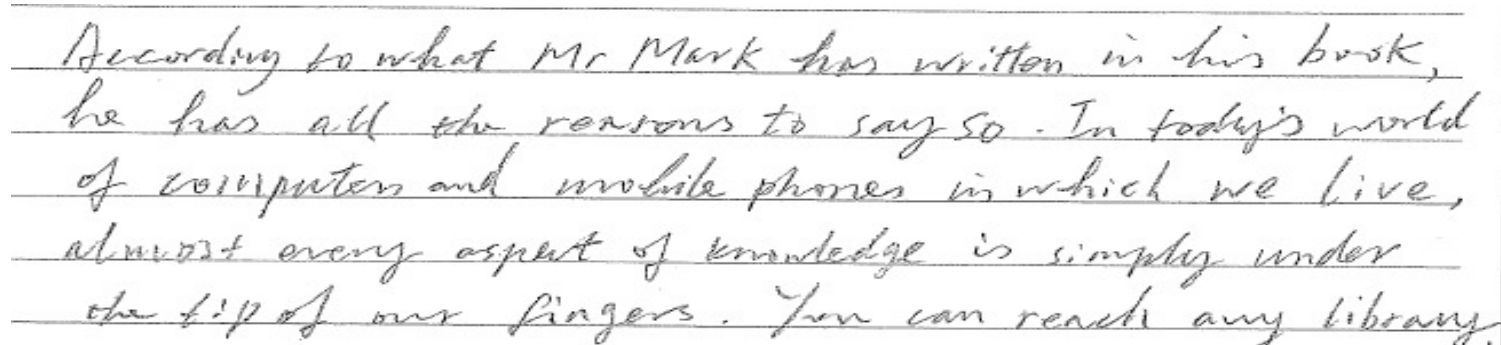 According to what Mr Mark has written in his book,
he has all the reasons to say so. In today's world
of computers and mobile phones in which we live,
almost every aspect of knowledge is simply under
the tip of our fingers. You can reach any library,